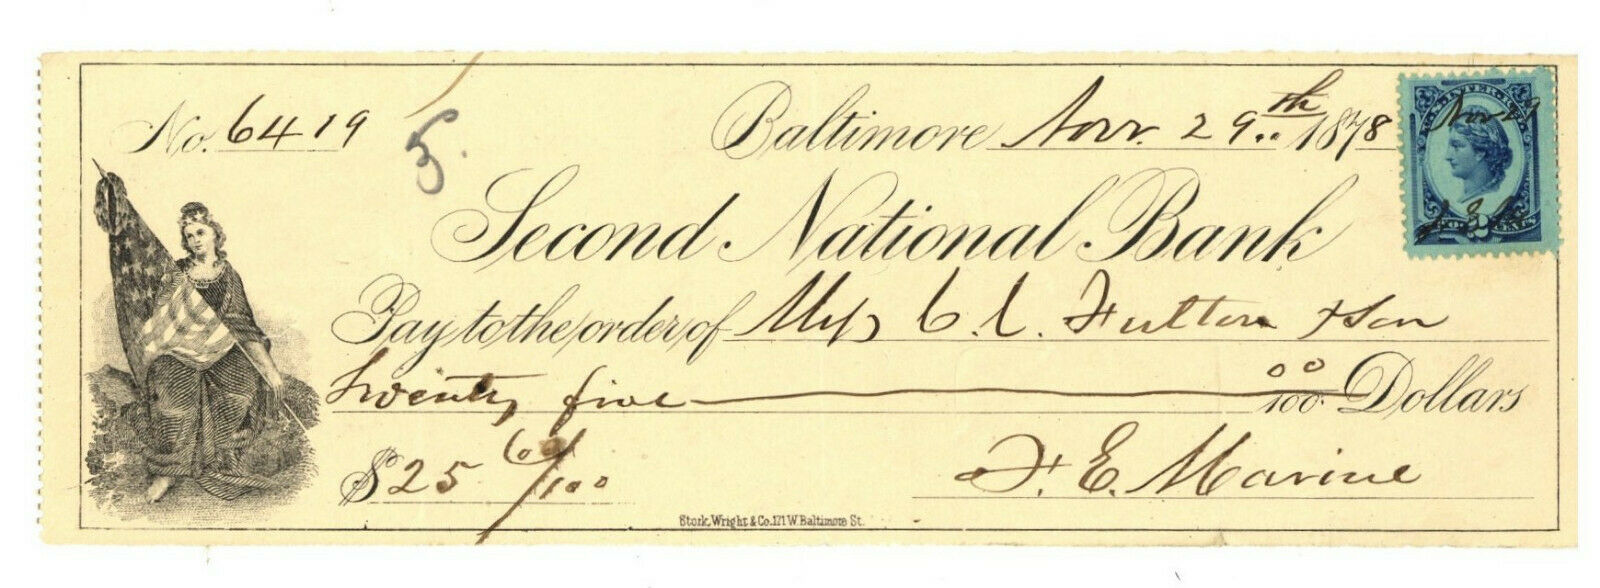 No. 6419
5.
Baltimore Nov. 29th 1878
Second National Bank
Pay to the order of C. C. Fulton & Son
Twenty five 00/100 Dollars
$25 00/100
F. E. Marine
Stork, Wright & Co. 171 W Baltimore St.
Nov 29
2